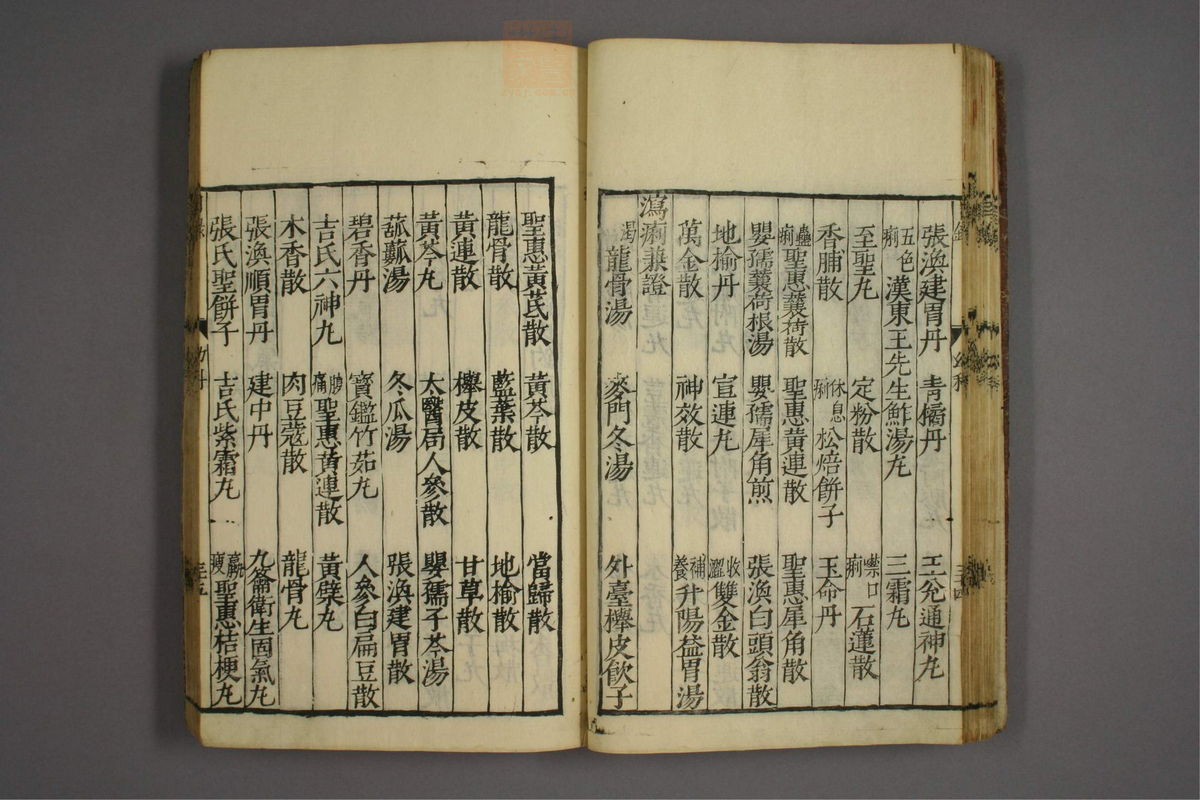 張渙建胃丹 青橘丹 王兊通神丸
五色痢 漢東王先生鮓湯丸 三霜丸
至聖丸 定粉散 噤口痢 石蓮散
香脯散 休息痢 松焙餅子 玉命丹
蠱痢 聖惠蘘荷散 聖惠黃連散 聖惠犀角散
嬰孺蘘荷根湯 嬰孺犀角煎 張渙白頭翁散
地榆丹 宣連丸 收澀 雙金散
萬金散 神效散 補養 升陽益胃湯
瀉痢兼證
渴 龍骨湯 麥門冬湯 外臺櫸皮飲子
聖惠黃芪散 黃芩散 當歸散
龍骨散 藍葉散 地榆散
黃連散 櫸皮散 甘草散
黃芩丸 太醫局人參散 嬰孺子芩湯
菰蓏湯 冬瓜湯 張渙建胃散
碧香丹 寶鑑竹茹丸 人參白扁豆散
吉氏六神丸 腸痛 聖惠黃連散 黃蘗丸
木香散 肉豆蔻散 龍骨丸
張渙順胃丹 建中丹 九籥衛生固氣丸
張氏聖餅子 吉氏紫霜丸 羸瘦 聖惠桔梗丸